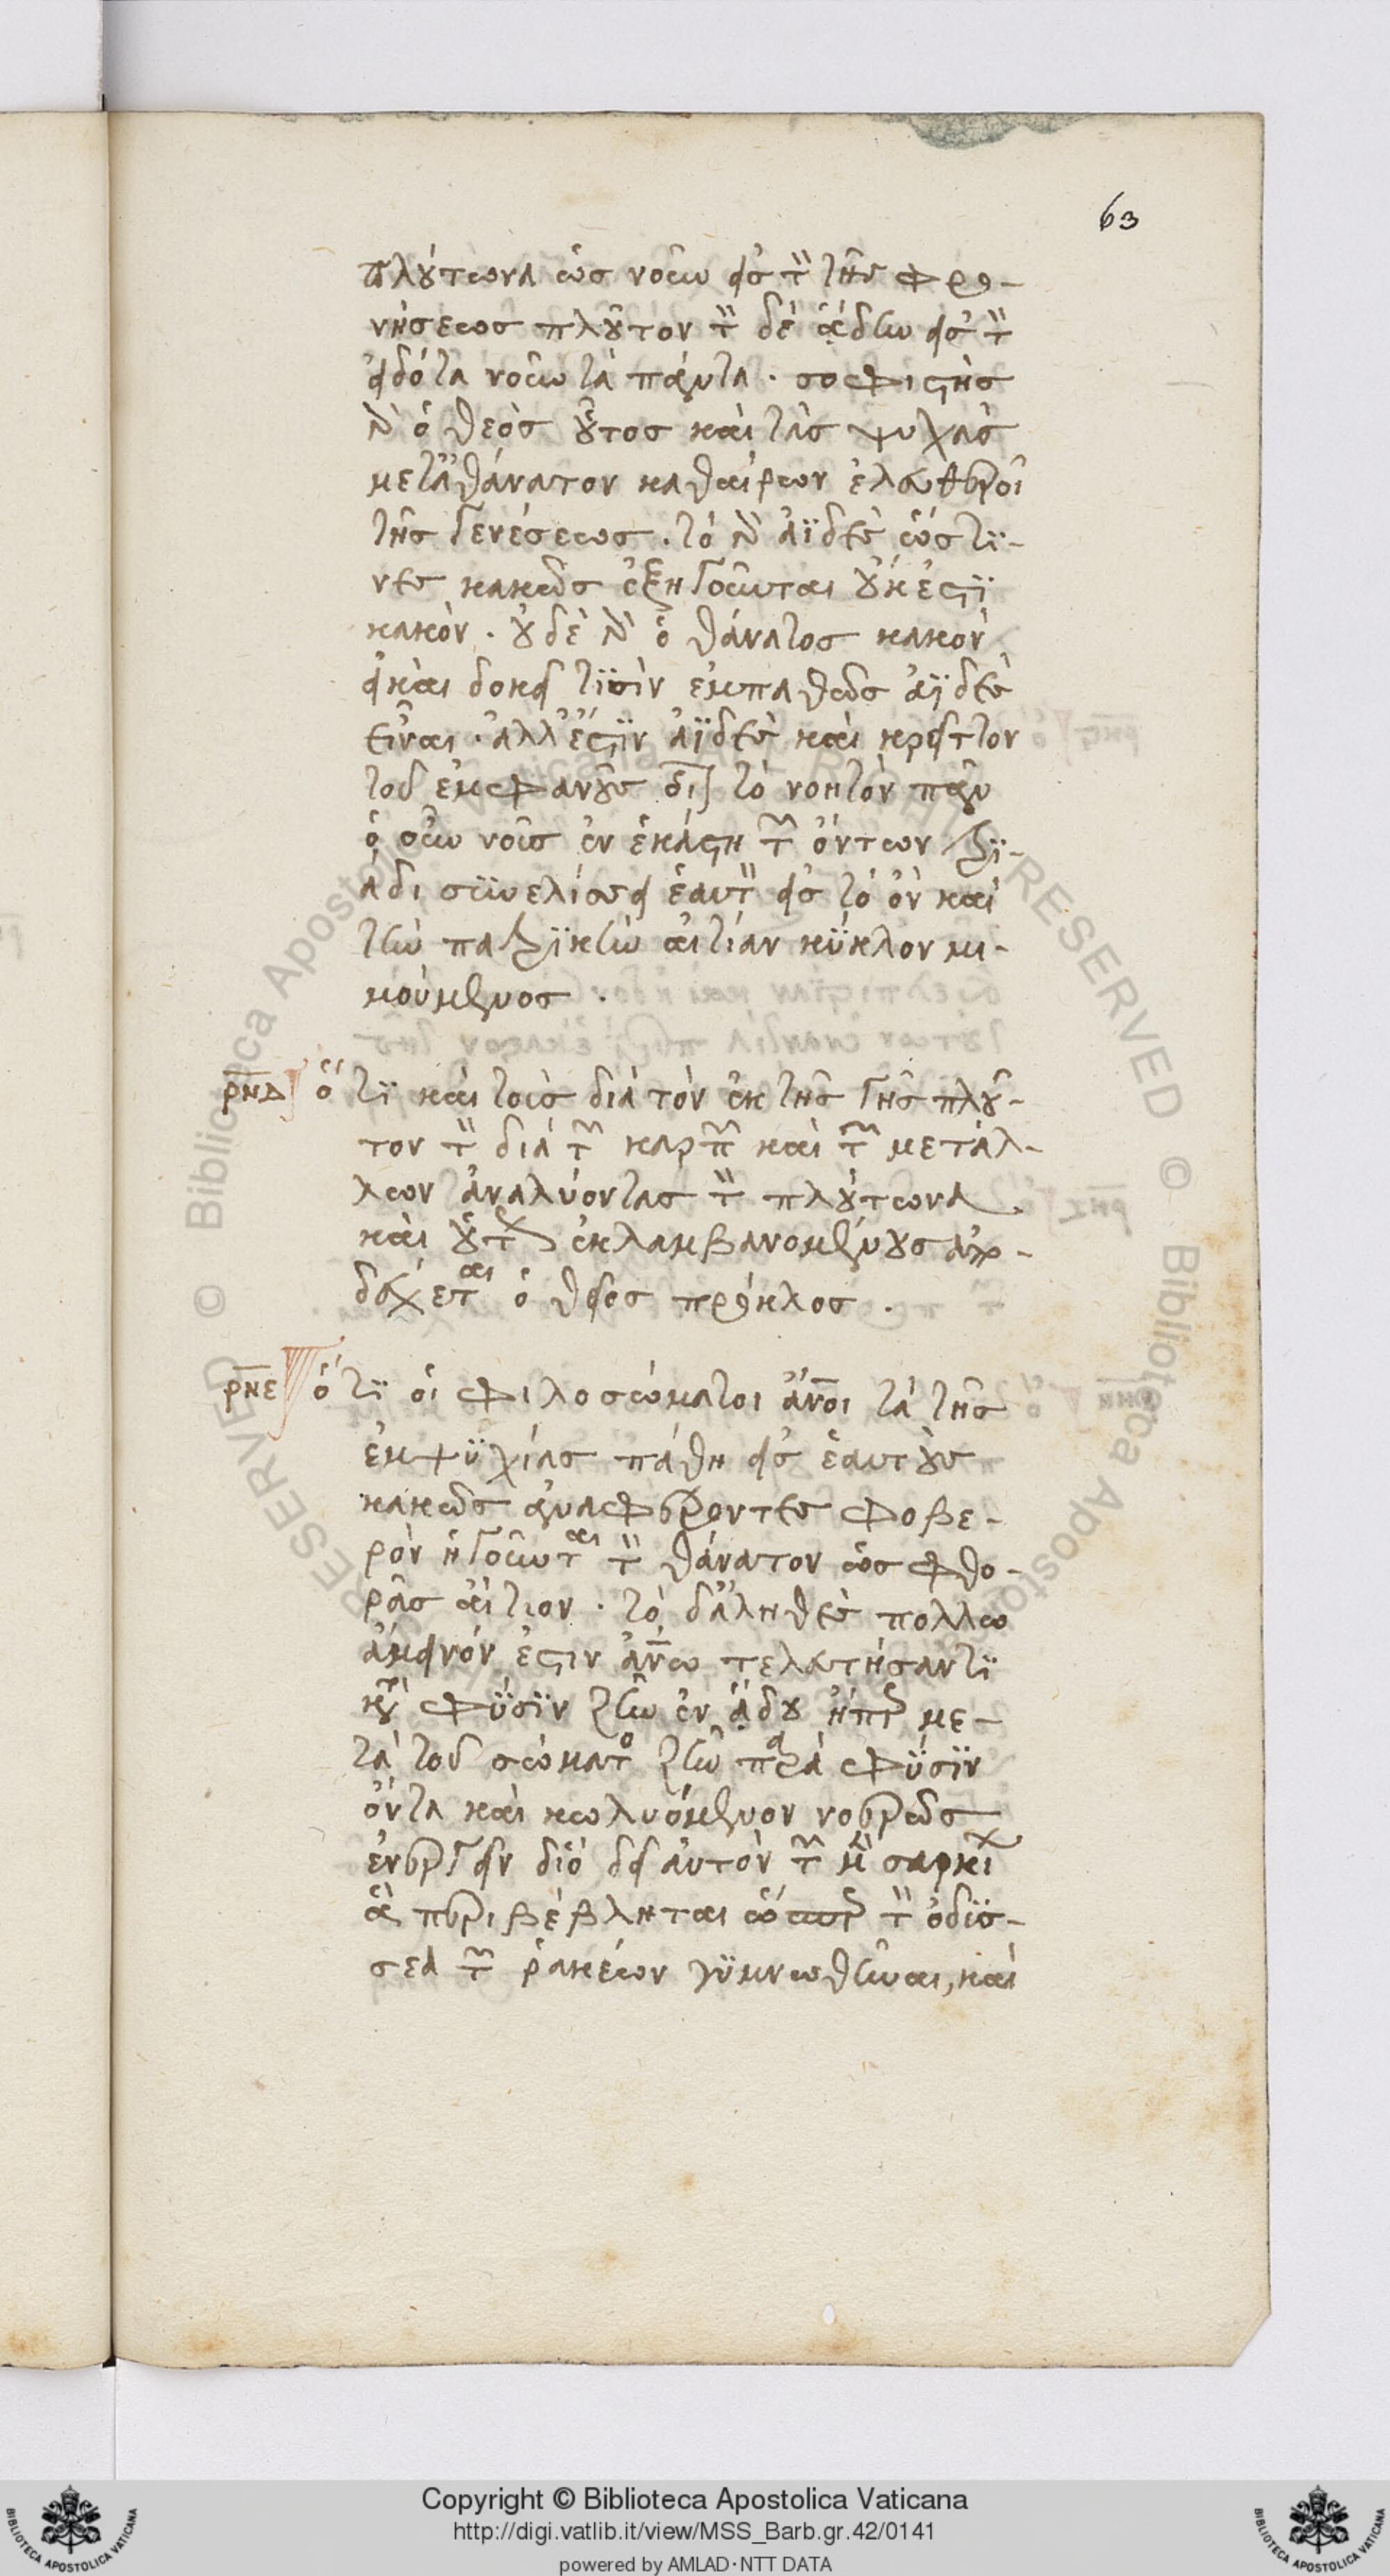 63
πλούτωνα ὡς νοῦν εἰς τὸν τῆς φρο-
νήσεως πλοῦτον τὸν δὲ ἅδην εἰς τὸν
εἰδότα νοῦν τὰ πάντα · σοφιστὴς
γὰρ ὁ θεὸς οὗτος καὶ τὰς ψυχὰς
μετὰ θάνατον καθαίρων ἐλευθεροῖ
τῆς γενέσεως · τὸ γὰρ ἀϊδὲς ὥς τϊ-
νες κακῶς ἐξηγοῦνται οὐκ ἔστϊ
κακὸν · οὐδὲ γὰρ ὁ θάνατος κακὸν
εἰ καὶ δοκεῖ τϊσὶν ἐμπαθῶς ἀϊδὲς
εἶναι · ἀλλ' ἔστϊν ἀϊδὲς καὶ κρεῖττον
τοῦ ἐμφανοῦς οἷον τὸ νοητὸν πᾶν
ὁ οὖν νοῦς ἐν ἑκάστη τῶν ὄντων τρϊ-
άδι σϋνελίσσει ἑαυτὸν εἰς τὸ ὂν καὶ
τὴν πατρϊκὴν αἰτίαν κύκλον μι-
μούμενος ·
ρνδ ὅτϊ καὶ τοὺς διὰ τὸν ἐκ τῆς γῆς πλοῦ-
τον τὸν διὰ τῶν καρπῶν καὶ τῶν μετάλ-
λων ἀναλύοντας τὸν πλούτωνα
καὶ οὕτως ἐκλαμβανομένους ἀπο-
δέχεται ὁ θεῖος πρόκλος ·
ρνε ὅτϊ οἱ φιλοσώματοι ἄνοι τὰ τῆς
ἐμψϋχίας πάθη εἰς ἑαυτοὺς
κακῶς ἀναφέροντες φοβε-
ρὸν ἡγοῦνται τὸν θάνατον ὡς φθο-
ρᾶς αἴτιον · τὸ δ' ἀληθὲς πολλω
ἄμεινόν ἐστιν ἀνω τελευτήσαντϊ
κατὰ φύσϊν ζῆν ἐν ἅδου ἤπερ με-
τὰ τοῦ σώματος ζῆν παρὰ φύσϊν
ὄντα καὶ κωλυόμενον νοερῶς
ἐνεργεῖν διὸ δεῖ αὐτὸν τῶν μὲν σαρκίων
ἃ περιβέβληται ὥσπερ τὸν ὀδϋσ-
σεα τῶν ῥακέων γϋμνωθῆναι, καὶ
Copyright © Biblioteca Apostolica Vaticana
http://digi.vatlib.it/view/MSS_Barb.gr.42/0141
powered by AMLAD·NTT DATA